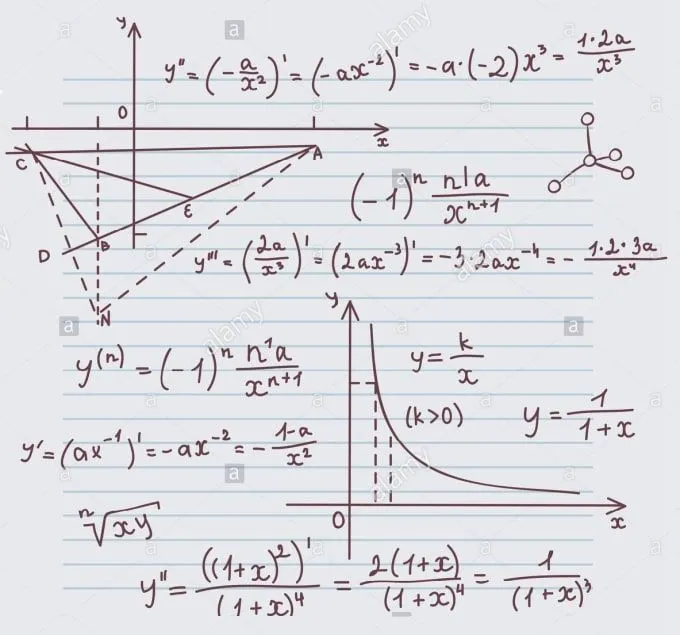 y
y'' = (-a/x²)' = (-ax⁻²)' = -a·(-2)x³ = 1·2a/x³
0
x
C
A
(-1)ⁿ n|a/xⁿ⁺¹
E
B
D
y''' = (2a/x³)' = (2ax⁻³)' = -3·2ax⁻⁴ = -1·2·3a/x⁴
N
y
y⁽ⁿ⁾ = (-1)ⁿ n'a/xⁿ⁺¹
y = k/x
(k>0)
y = 1/1+x
y' = (ax⁻¹)' = -ax⁻² = -1-a/x²
ⁿ√xy
0
x
y'' = ((1+x)²)'/(1+x)⁴ = 2(1+x)/(1+x)⁴ = 1/(1+x)³
alamy
a